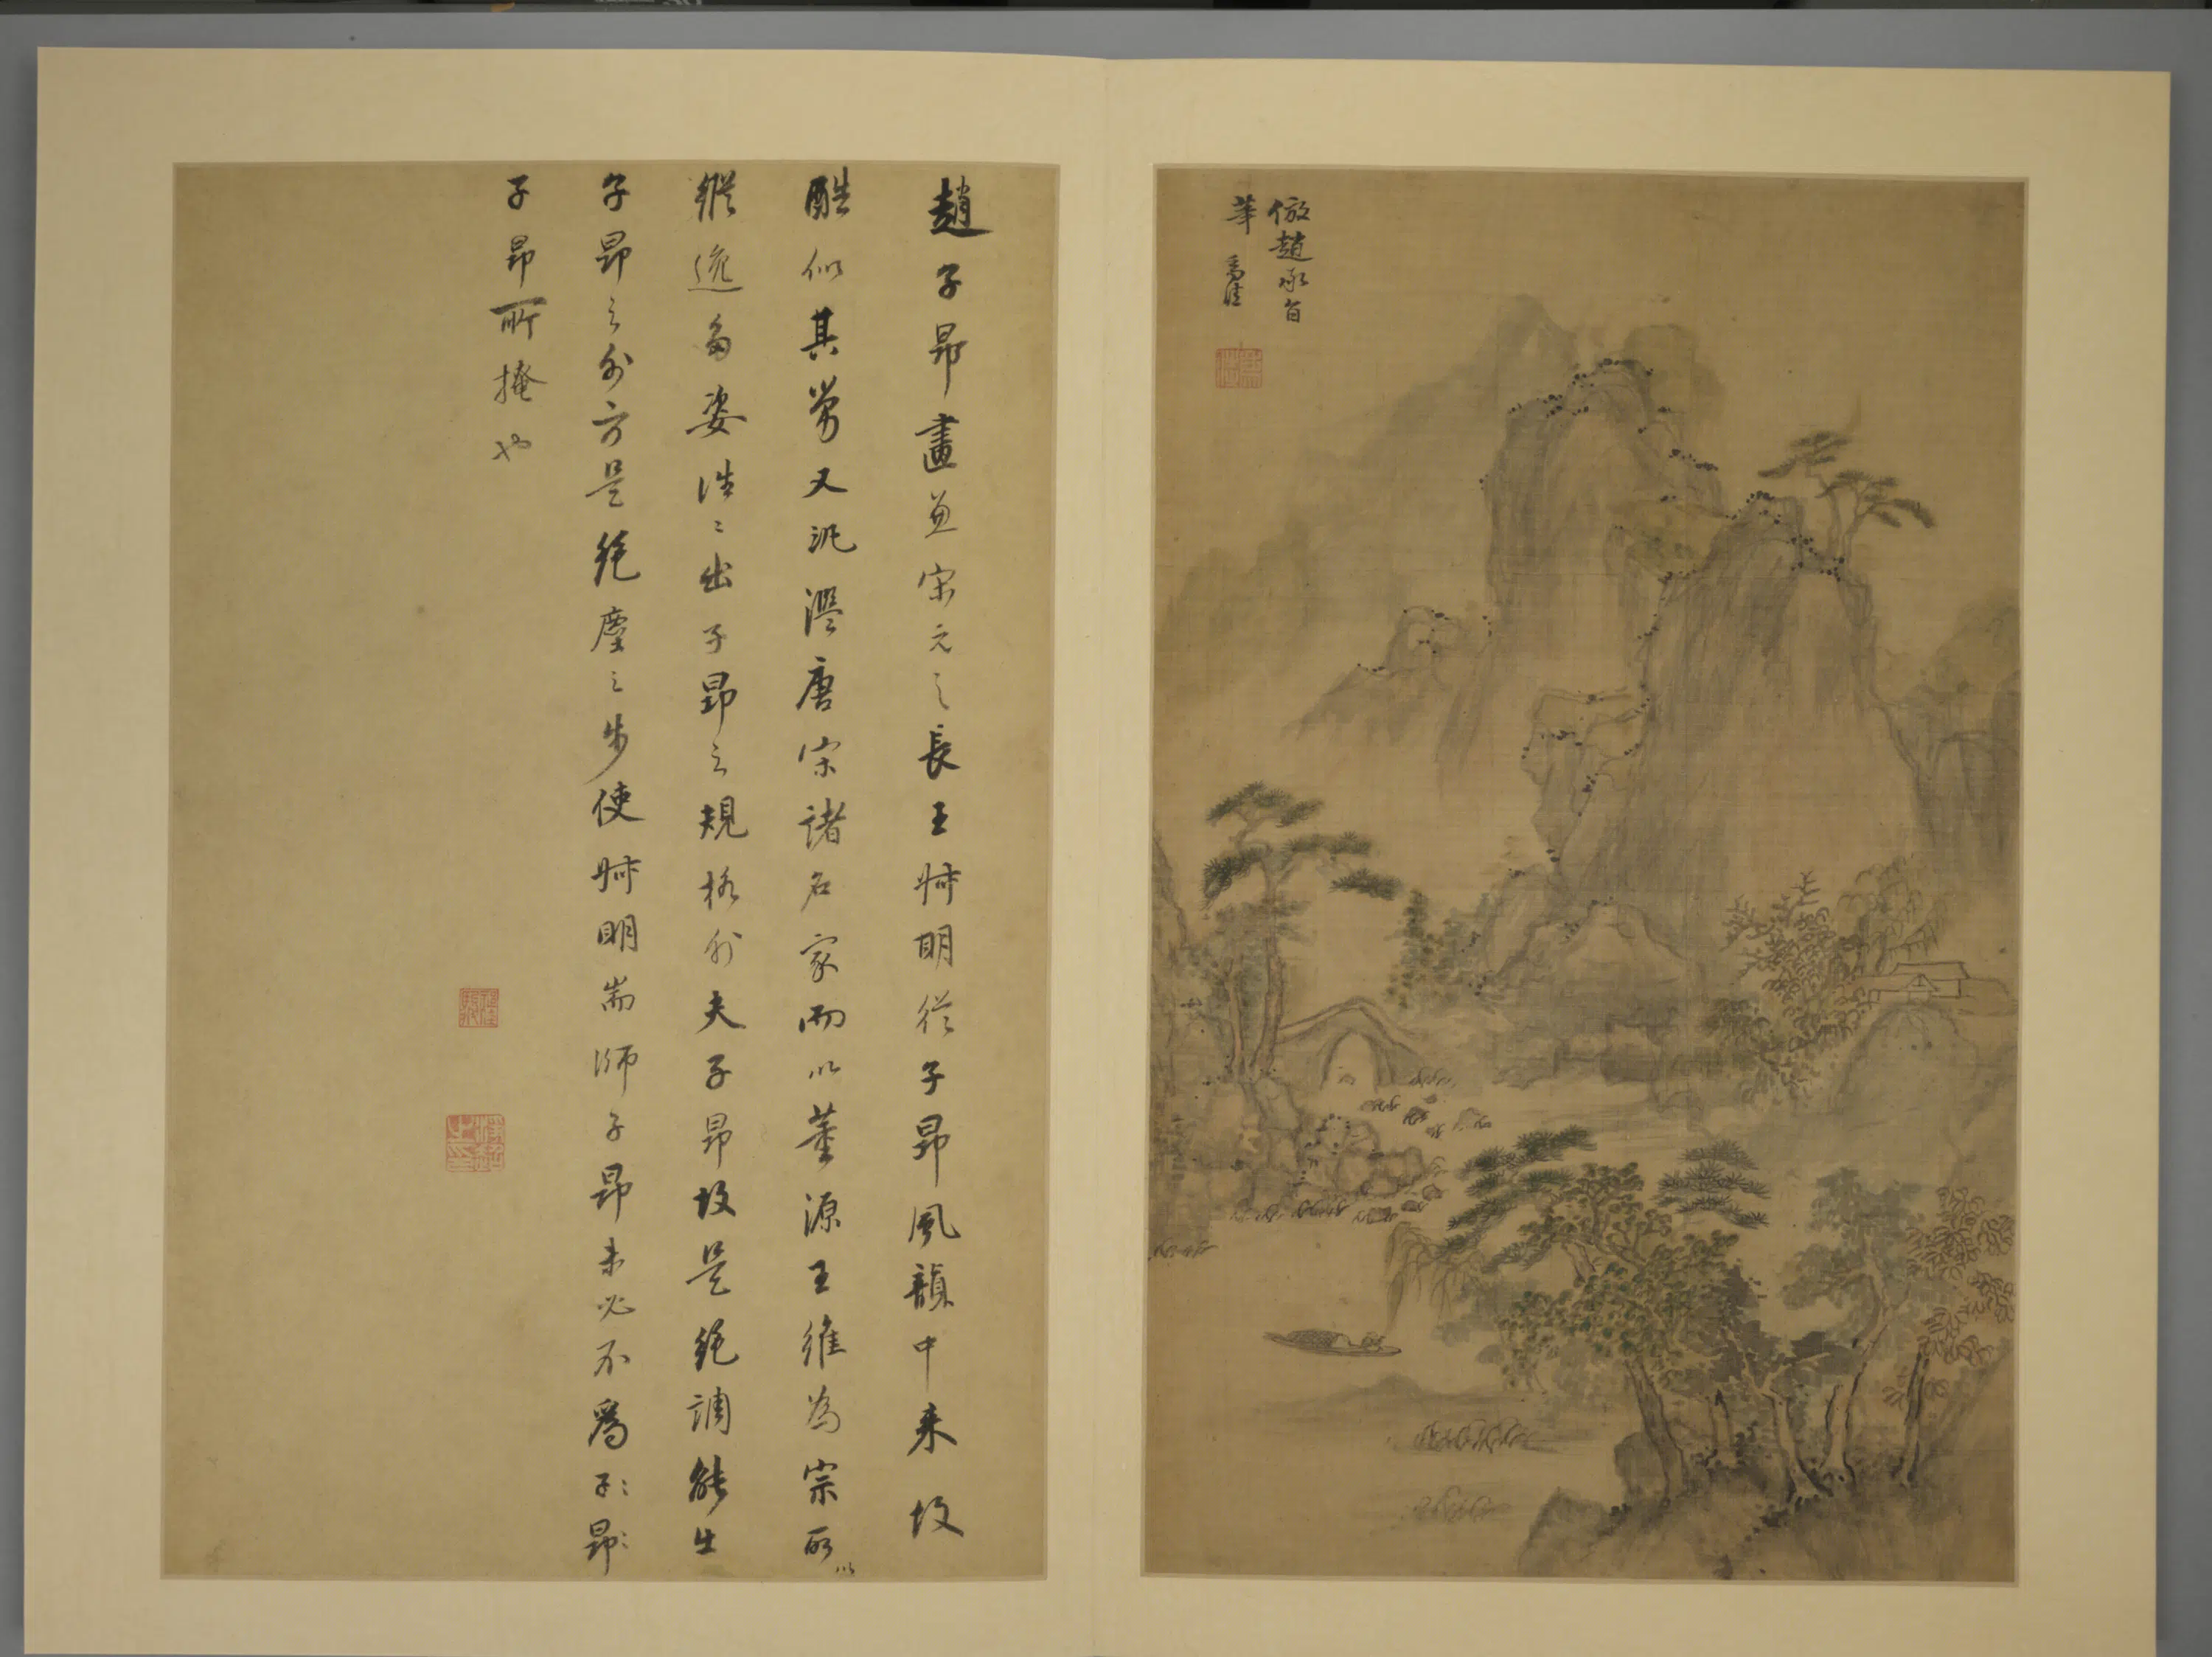 倣趙承旨
筆
趙子昂畫兼宋元之長王叔明從子昂風韻中来故
酷似其舅又汎濫唐宋諸名家而以董源王維為宗所以
縱逸多姿往〻出子昂之規格外夫子昂故是絕調能生
子昂之外方是絕塵之步使叔明耑師子昂未必不爲子昂
子昂所掩也